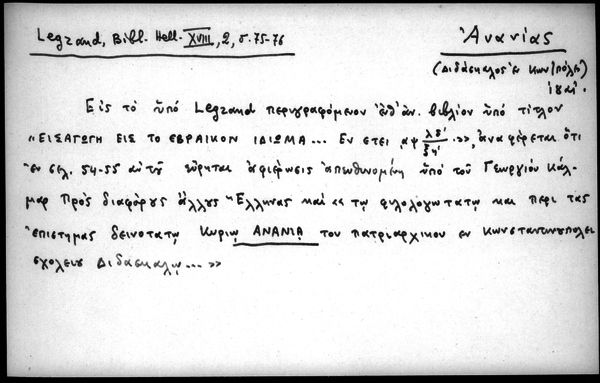 Legrand, Bibl. Hell. XVIII, 2, σ. 75-76
Ἀνανίας
(Διδάσκαλος ἐν Κων/πόλει)
ιηαί.
Εἰς τὸ ὑπό Legrand περιγραφόμενον ὑπ' ἀν. βιβλίον ὑπό τίτλον
«ΕΙΣΑΓΩΓΗ ΕΙΣ ΤΟ ΕΒΡΑΙΚΟΝ ΙΔΙΩΜΑ... Εν ετει αψ λδ'/ξδ' .», ἀναφέρεται ὅτι
ἐν σελ. 54-55 αὐτοῦ εὕρηται ἀφιέρωσις ἀπευθυνομένη ὑπό τοῦ Γεωργίου Κάλ-
μαρ Πρὸς διαφόρους ἄλλους Ἕλληνας καὶ «τῳ φιλολογωτατῳ και περι τας
ἐπιστημας δεινοτατῳ Κυριῳ ΑΝΑΝΙᾼ του πατριαρχικου εν Κωνσταντινουπολει
σχολειου Διδασκαλῳ...»